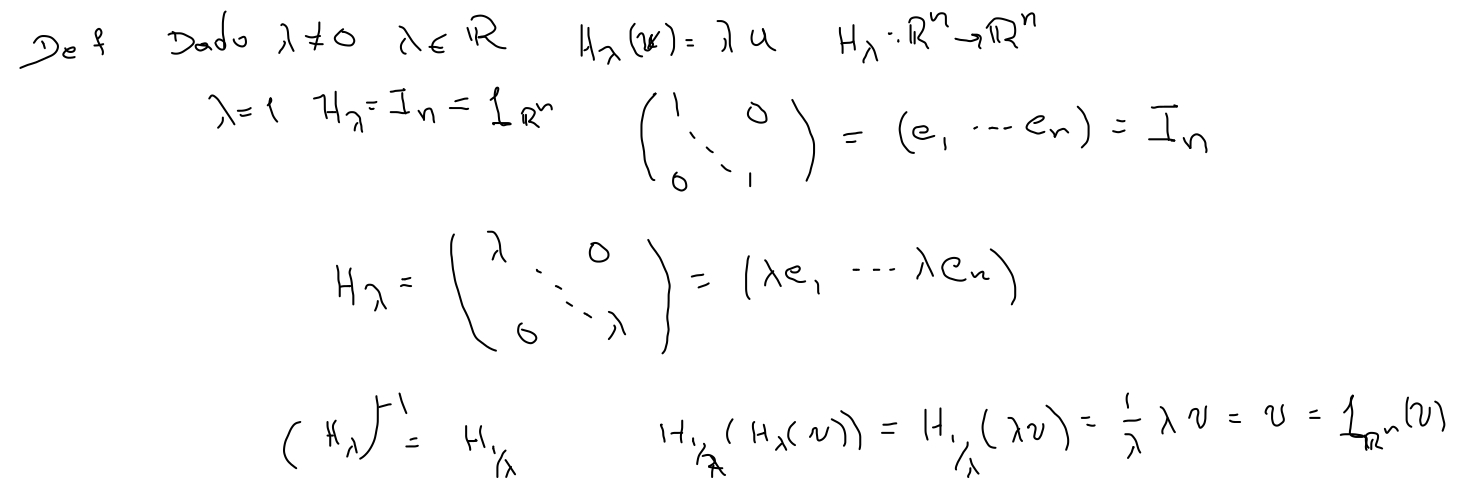 Def Dado λ≠0 λ∈ℝ H_λ(v) = λu H_λ : ℝ^n → ℝ^n
λ=1 H_λ = I_n = 1_{ℝ^n} (1 0 ⋱ 0 1) = (e_1 ··· e_n) = I_n
H_λ = (λ 0 ⋱ 0 λ) = (λe_1 ··· λe_n)
(H_λ)^{-1} = H_{1/λ} H_{1/λ}(H_λ(v)) = H_{1/λ}(λv) = 1/λ λv = v = 1_{ℝ^n}(v)